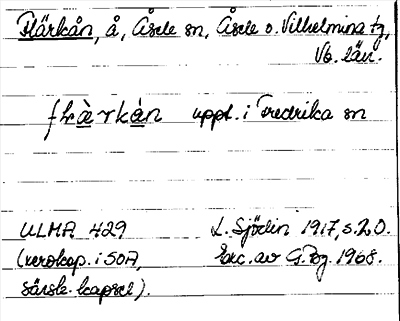 Flärkån, å, Åsele sn, Åsele o. Vilhelmina tg,
Vb. län.
uppt. i Fredrika sn
ULMA 429 L. Sjödin 1917, s. 20.
(xerokop. i SOA, Exc. av G. Pg. 1968.
särsk. kapsel).